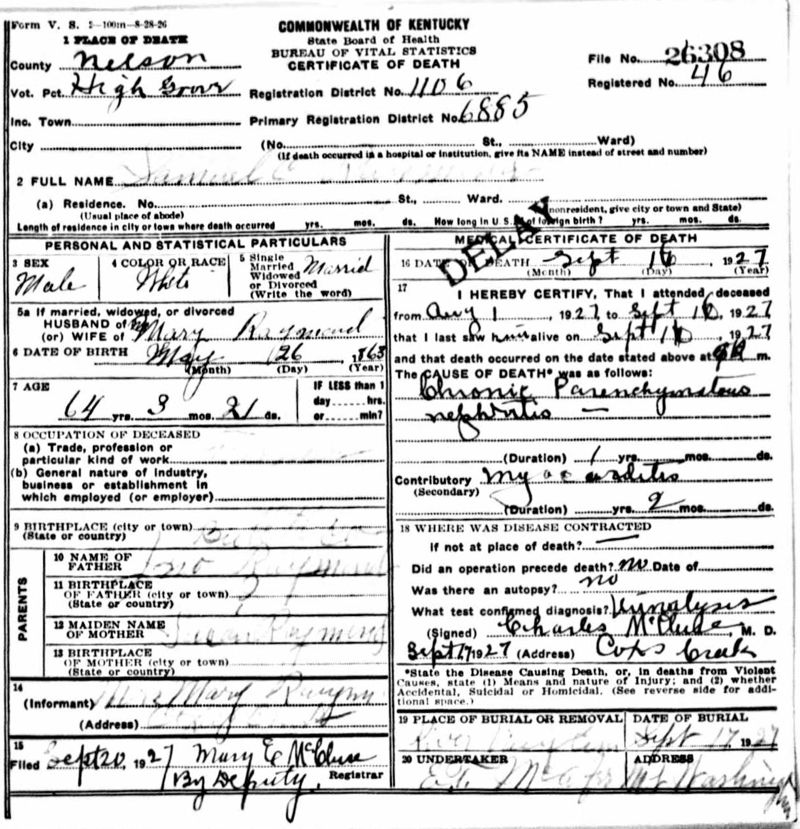 Form V. S. 2-100m-8-28-26
COMMONWEALTH OF KENTUCKY
State Board of Health
BUREAU OF VITAL STATISTICS
CERTIFICATE OF DEATH
1 PLACE OF DEATH
County Nelson
Vot. Pct. High Grove
Inc. Town
City
File No. 26308
Registered No. 46
Registration District No. 1106
Primary Registration District No. 6885
(No. St., Ward)
(If death occurred in a hospital or institution, give its NAME instead of street and number)
2 FULL NAME Samuel
(a) Residence. No. St., Ward.
(Usual place of abode) nonresident, give city or town and State)
Length of residence in city or town where death occurred yrs. mos. ds. How long in U. S. of foreign birth? yrs. mos. ds.
DELAY
PERSONAL AND STATISTICAL PARTICULARS
3 SEX
Male
4 COLOR OR RACE
White
5 Single
Married
Widowed
or Divorced
(Write the word)
Married
5a If married, widowed, or divorced
HUSBAND of
(or) WIFE of Mary Raymond
6 DATE OF BIRTH May 26 1863
(Month) (Day) (Year)
7 AGE
64 yrs. 3 mos. 21 ds.
IF LESS than 1
day hrs.
or min?
8 OCCUPATION OF DECEASED
(a) Trade, profession or
particular kind of work
(b) General nature of Industry,
business or establishment in
which employed (or employer)
9 BIRTHPLACE (city or town)
(State or country)
PARENTS
10 NAME OF
FATHER Jno Raymond
11 BIRTHPLACE
OF FATHER (city or town)
(State or country)
12 MAIDEN NAME
OF MOTHER Raymond
13 BIRTHPLACE
OF MOTHER (city or town)
(State or country)
14
(Informant) Mrs Mary
(Address)
15
Filed Sept 20, 1927 Mary E McCluse
By Deputy Registrar
MEDICAL CERTIFICATE OF DEATH
16 DATE OF DEATH Sept 16 1927
(Month) (Day) (Year)
17
I HEREBY CERTIFY, That I attended deceased
from Aug 1, 1927 to Sept 16, 1927
that I last saw him alive on Sept 16, 1927
and that death occurred on the date stated above at m.
The CAUSE OF DEATH* was as follows:
Chronic Parenchymatous
nephritis —
(Duration) 1 yrs. mos. ds.
Contributory Myocarditis
(Secondary)
(Duration) yrs. 2 mos. ds.
18 WHERE WAS DISEASE CONTRACTED
If not at place of death? —
Did an operation precede death? no Date of
Was there an autopsy? no
What test confirmed diagnosis? Urinalysis
(Signed) Charles McCluse, M. D.
Sept 17 1927 (Address) Coxs Creek
*State the Disease Causing Death, or, in deaths from Violent
Causes, state (1) Means and nature of Injury; and (2) whether
Accidental, Suicidal or Homicidal. (See reverse side for addi-
tional space.)
19 PLACE OF BURIAL OR REMOVAL
River
DATE OF BURIAL
Sept 17, 1927
20 UNDERTAKER
ADDRESS
Mt Washington